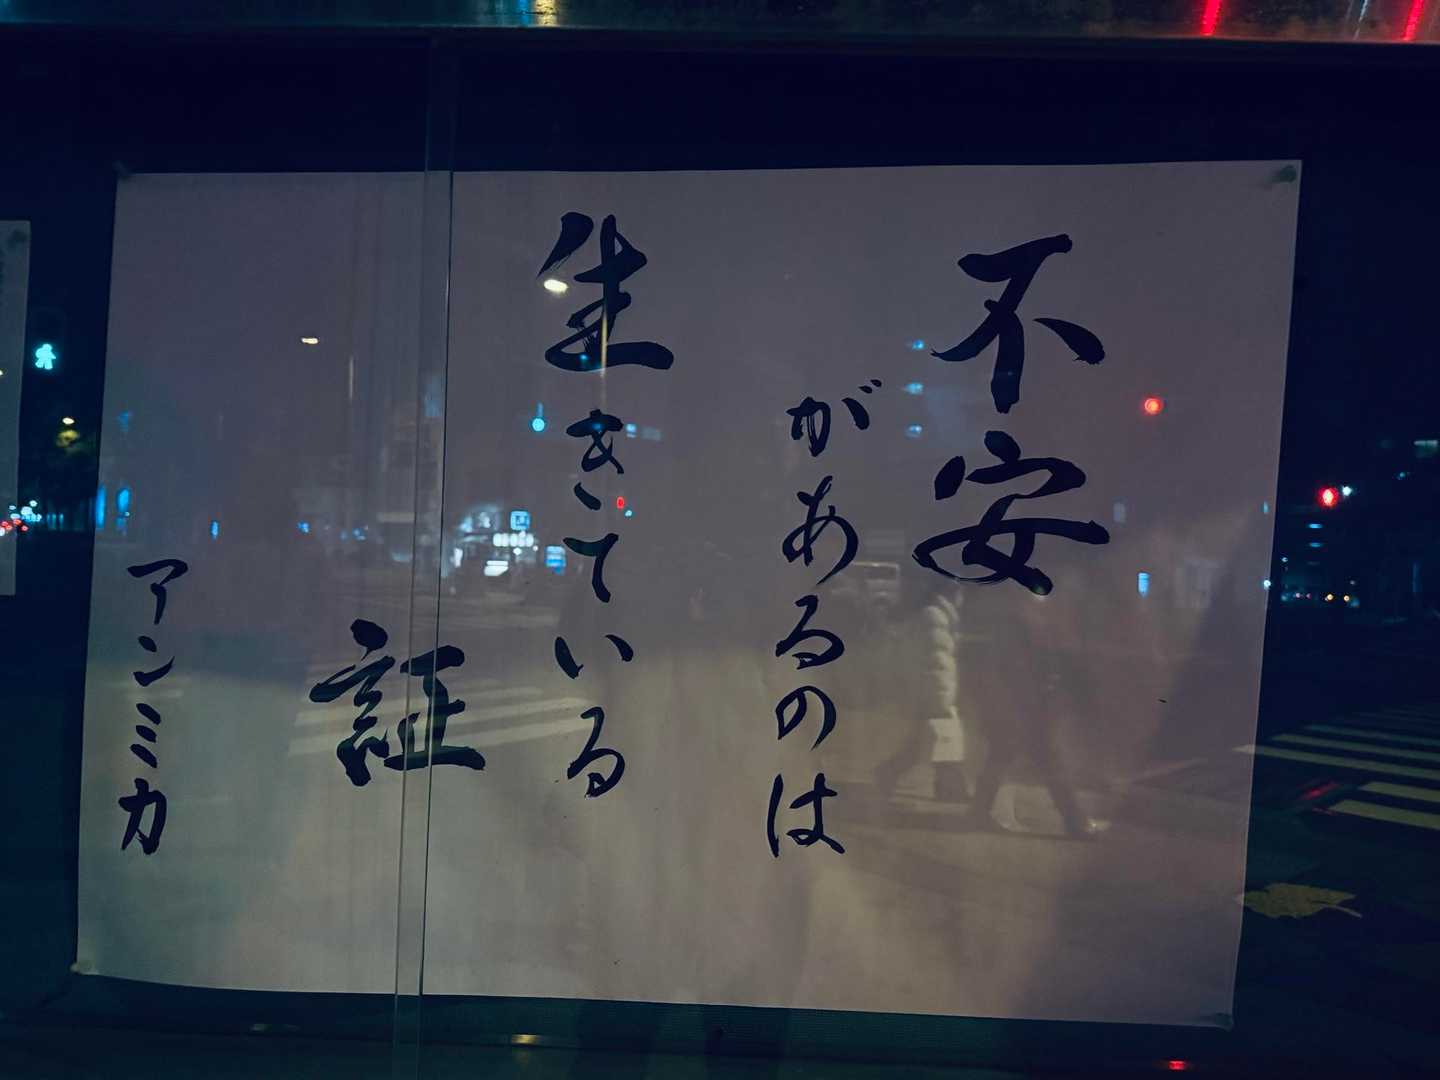 不安
があるのは
生きている
証
アンミカ